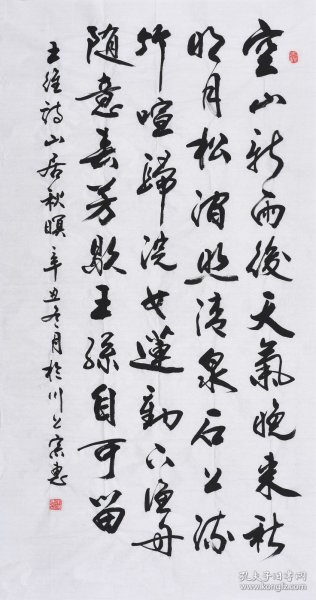 空山新雨後天氣晚来秋
明月松間照清泉石上流
竹喧歸浣女蓮動下漁舟
随意春芳歇王孫自可留
王維詩山居秋暝辛丑冬月於川上
孔夫子旧书网
www.kongfz.com